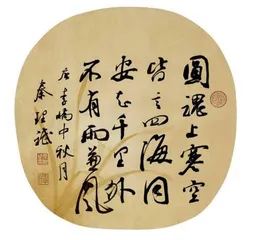 圓魄上寒空
皆言四海同
安知千里外
不有雨兼風
唐李嶠中秋月
秦理